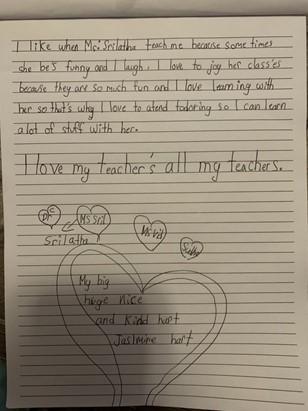 I like when Mrs. Srilatha teach me because some times
she be's funny and I laugh. I love to joy her class'es
because they are so much fun and I love learning with
her so that's why I love to atend todoring so I can learn
a lot of stuff with her.
I love my teacher's all my teachers.
Ms Sril
Srilatha
My big
huge nice
and kind hart
Jasmine hart